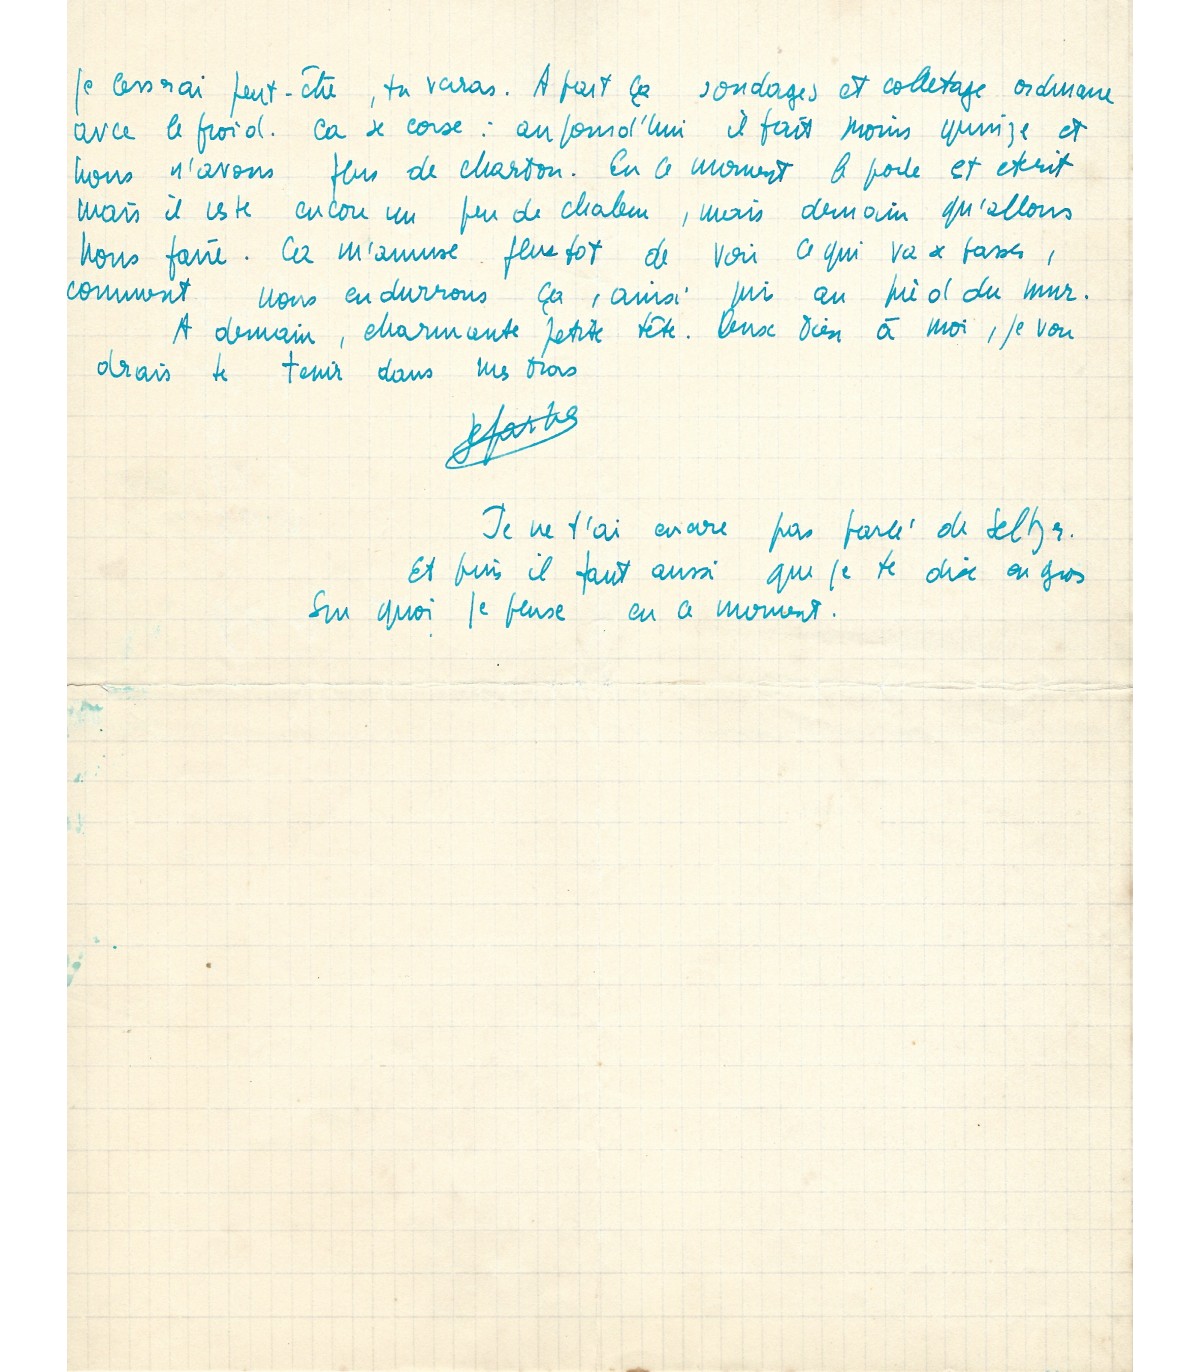 je cesserai peut-être, tu verras. A part ça sondages et colletage ordinaire
avec le froid. Ca se corse : aujourd'hui il fait moins quinze et
nous n'avons plus de charbon. En ce moment le poele est eteint
mais il reste encore un peu de chaleur, mais demain qu'allons
nous faire. Ca m'amuse plustot de voir ce qui va se passer,
comment nous endurerons ça, ainsi mis au pied du mur.
A demain, charmante petite tête. Pense bien à moi, je vou
drais te tenir dans mes bras
JPSartre
Je ne t'ai encore pas parlé de Seltzer.
Et puis il faut aussi que je te dise en gros
Sur quoi je pense en ce moment.